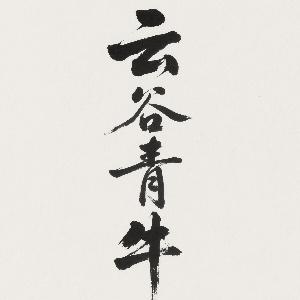 云谷青牛